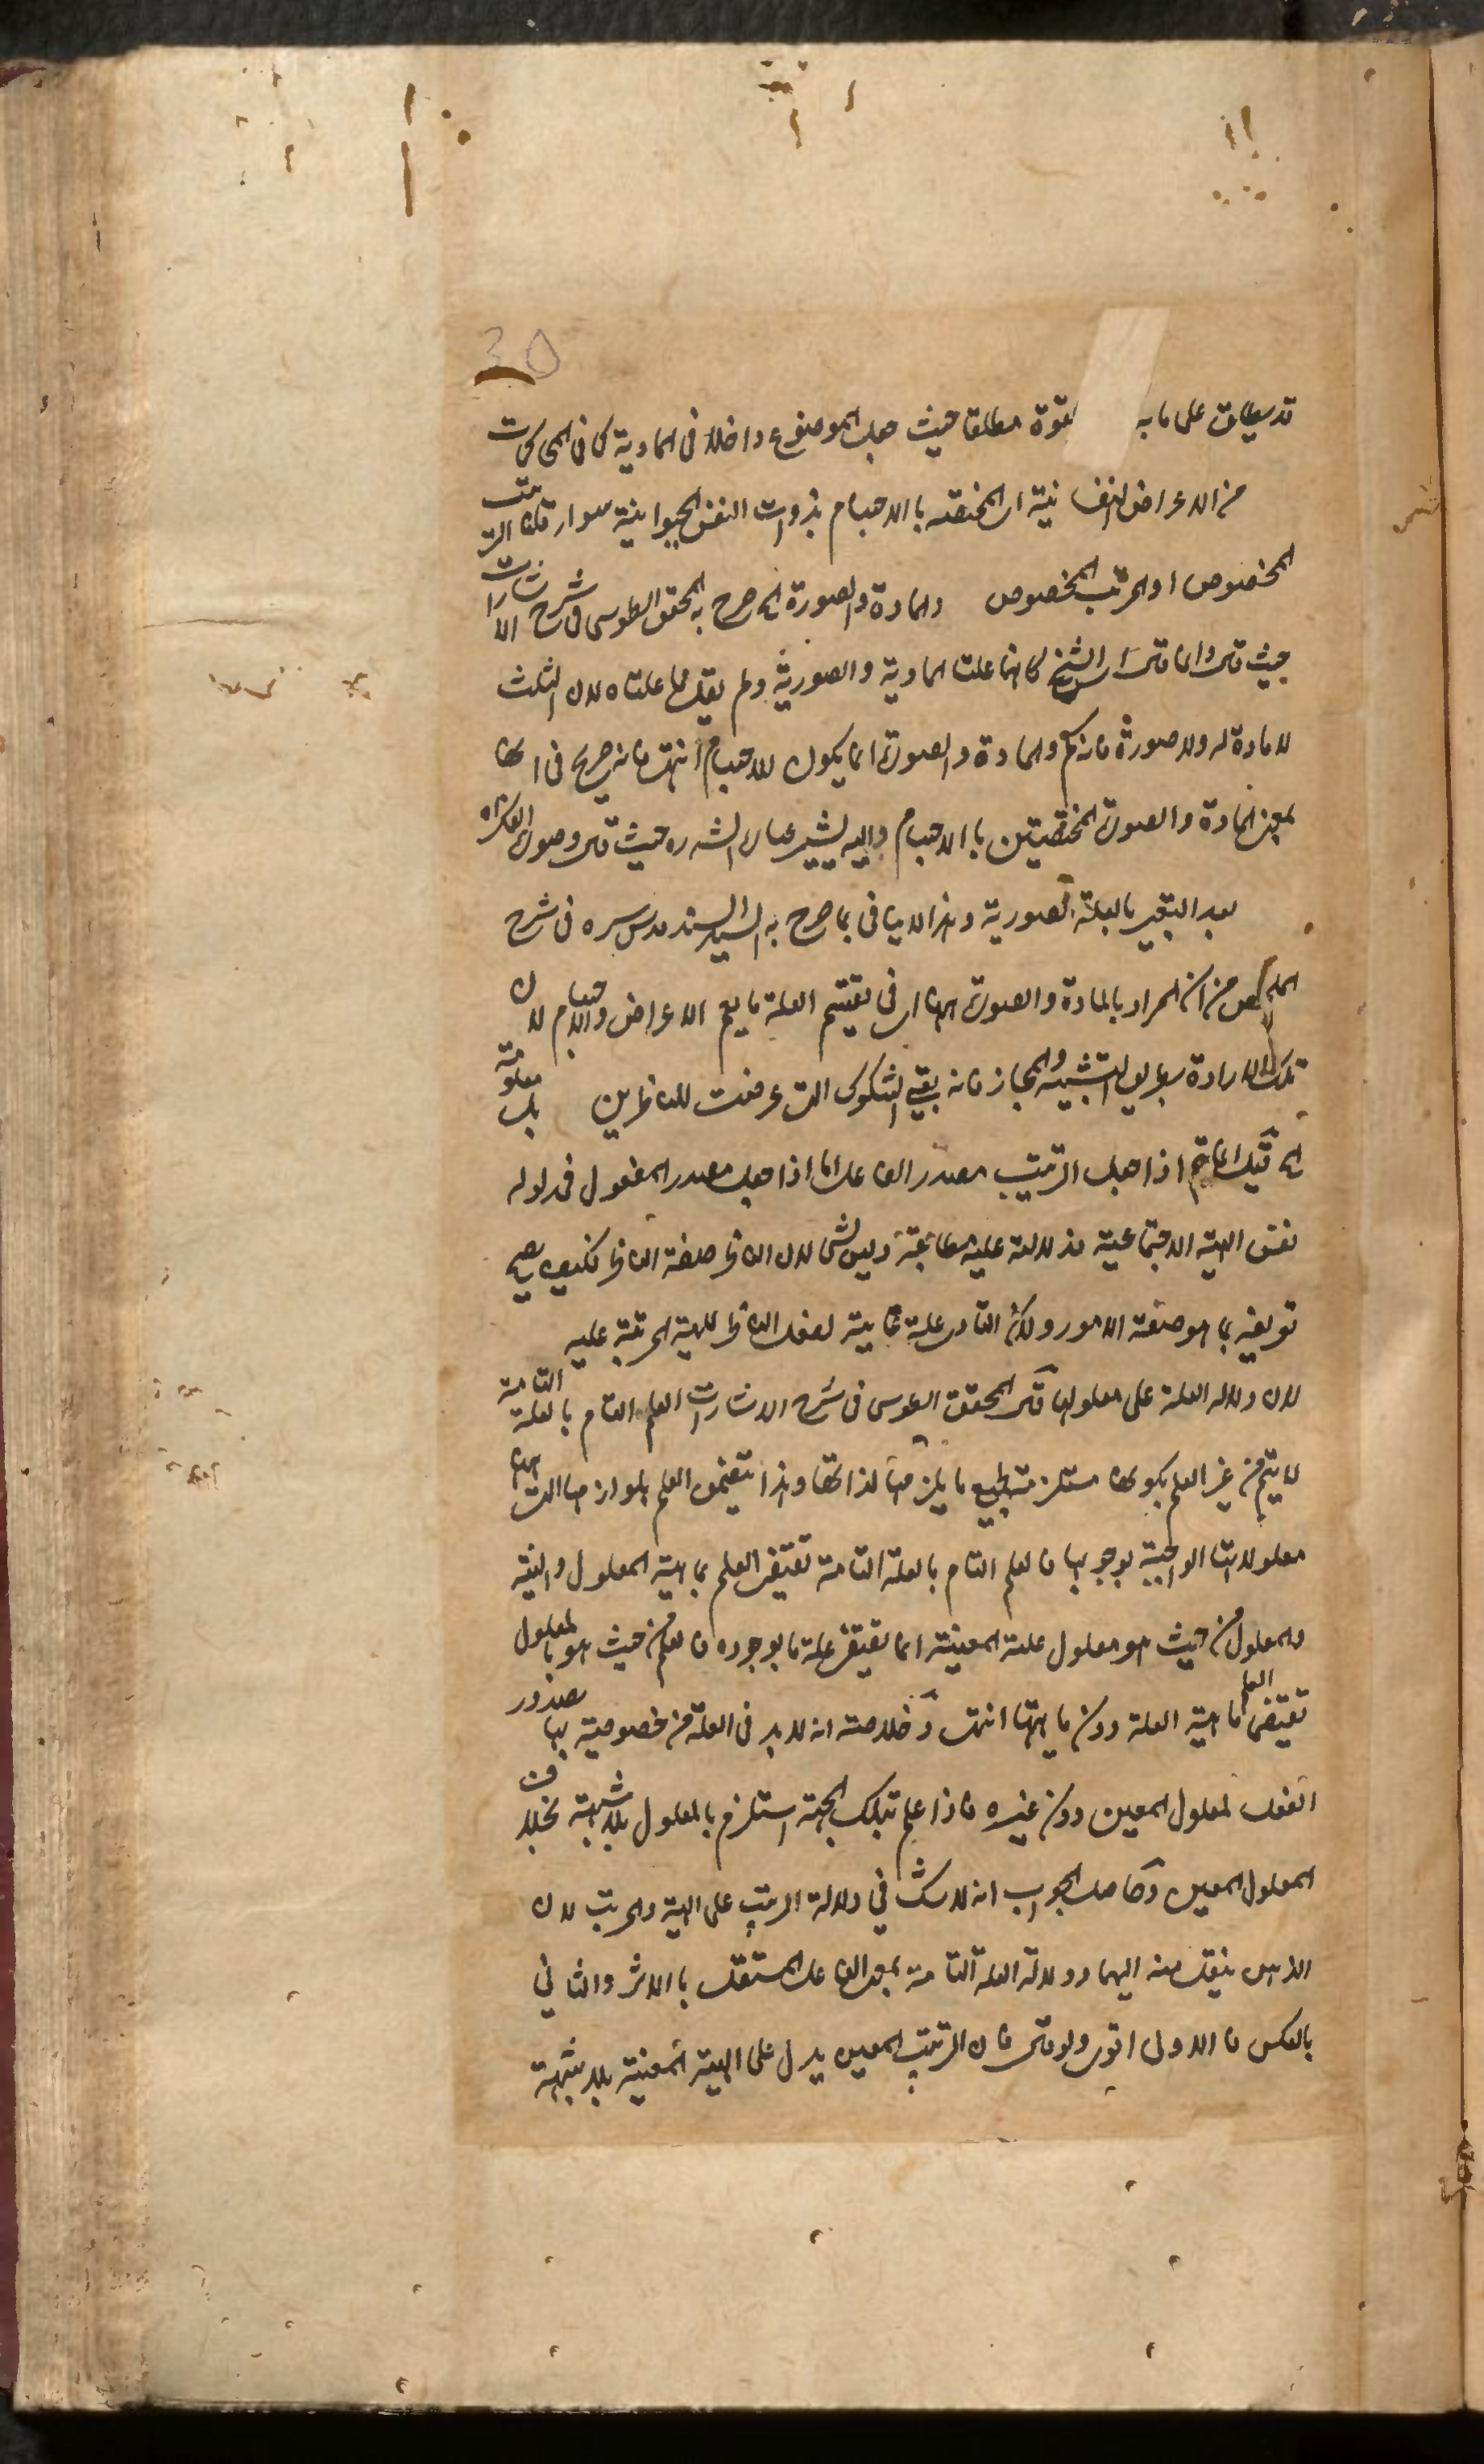 30
قد يطلق على ما به لقوة مطلقا حيث جعل الموضوع داخلا في المادية كما في المحاكمات
من الاعراض النفسانية اى المختصة بالاجسام بذوات النفس الحيوانية سواء كان الترتيب
المخصوص او المرتب المخصوص والمادة والصورة كما صرح به المحقق الطوسى في شرح الاشارات
حيث قال وانما قال الشيخ كانهما علتاه المادية والصورية ولم يقل هما علتاه لان المثلث
لا مادة له ولا صورة فانه كم والمادة والصورة انما يكون للاجسام انتهى فانه صريح في
بمعنى المادة والصورة المختصتين بالاجسام واليه يشير عبارة الش ره حيث قال وصورة الفكر اه
بعد التعبير بالعلة الصورية وهذا لا ينافي بما صرح به السيد السند قدس سره في شرح
من ان المراد بالمادة والصورة في تقسيم العلة ما يعم الاعراض والاجسام لان
تلك الارادة بطريق التشبيه والمجاز فانه بقي الشكوك التى عرضت للناظرين معلومة بل
قيل انما يتم اذا جعل الترتيب مصدر الفاعل اما اذا جعل مصدر المفعول فمدلوله
نفس الهيئة الاجتماعية فدلالته عليه مطابقة وليس بشئ لان النظر صفة الناظر فكيف يصح
تعريفه بما هو صفة الامور ولان علة غائية لفعل الناظر للهيئة المرتبة عليه
لان دلالة العلة على معلولها قال المحقق الطوسى في شرح الاشارات العلم التام بالعلة التامة
لا يتم من غير العلم بكونها مستلزمة لجميع ما يلزمها لذاتها وهذا يتضمن العلم بلوازمها التى
معلولاتها الواجبة بوجوبها فالعلم التام بالعلة التامة يقتضى العلم بماهية المعلول وانيته
والمعلول من حيث هو معلول علته المعينة انما يقتضى علة ما بوجوده فالعلم من حيث هو بالمعلول
يقتضى العلم ماهية العلة دون ماهيتها انتهى وخلاصته انه لا بد في العلة من خصوصية بها بصدور
الفعل لمعلول المعين دون غيره فاذا علم تلك الجهة استلزم بالمعلول بلا شبهة بخلاف
المعلول المعين وحاصل الجواب انه لا شك في دلالة الترتيب على الهيئة والمرتب لان
الذهن ينتقل منه اليهما ودلالة العلة التامة بمعنى الفاعل المستقل بالاثر والثانى
بالعكس فالاول اقوى ولو قال فان الترتيب المعين يدل على الهيئة المعينة بلا شبهة